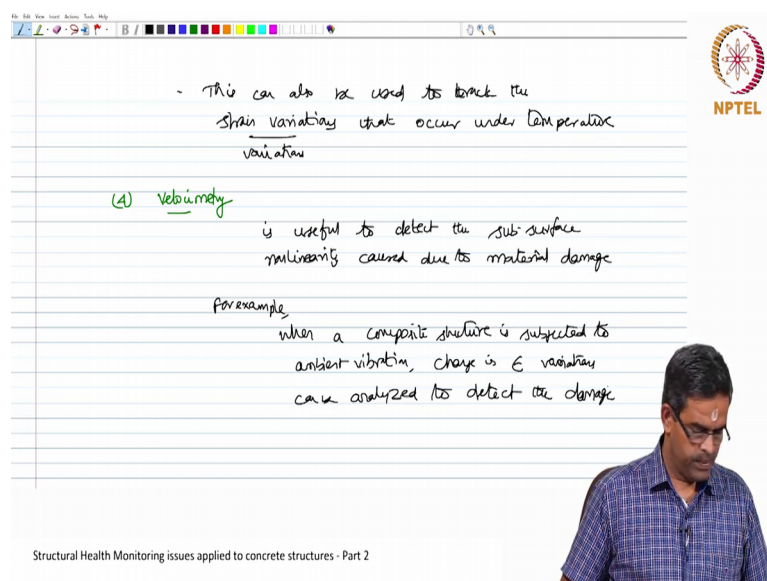 File Edit View Insert Actions Tools Help
B I
NPTEL
- This can also be used to track the
strain variations that occur under temperature
variation
(4) Velocimetry
is useful to detect the sub-surface
nonlinearity caused due to material damage
For example,
when a composite structure is subjected to
ambient vibration, change is ε variations
can be analyzed to detect the damage
Structural Health Monitoring issues applied to concrete structures - Part 2